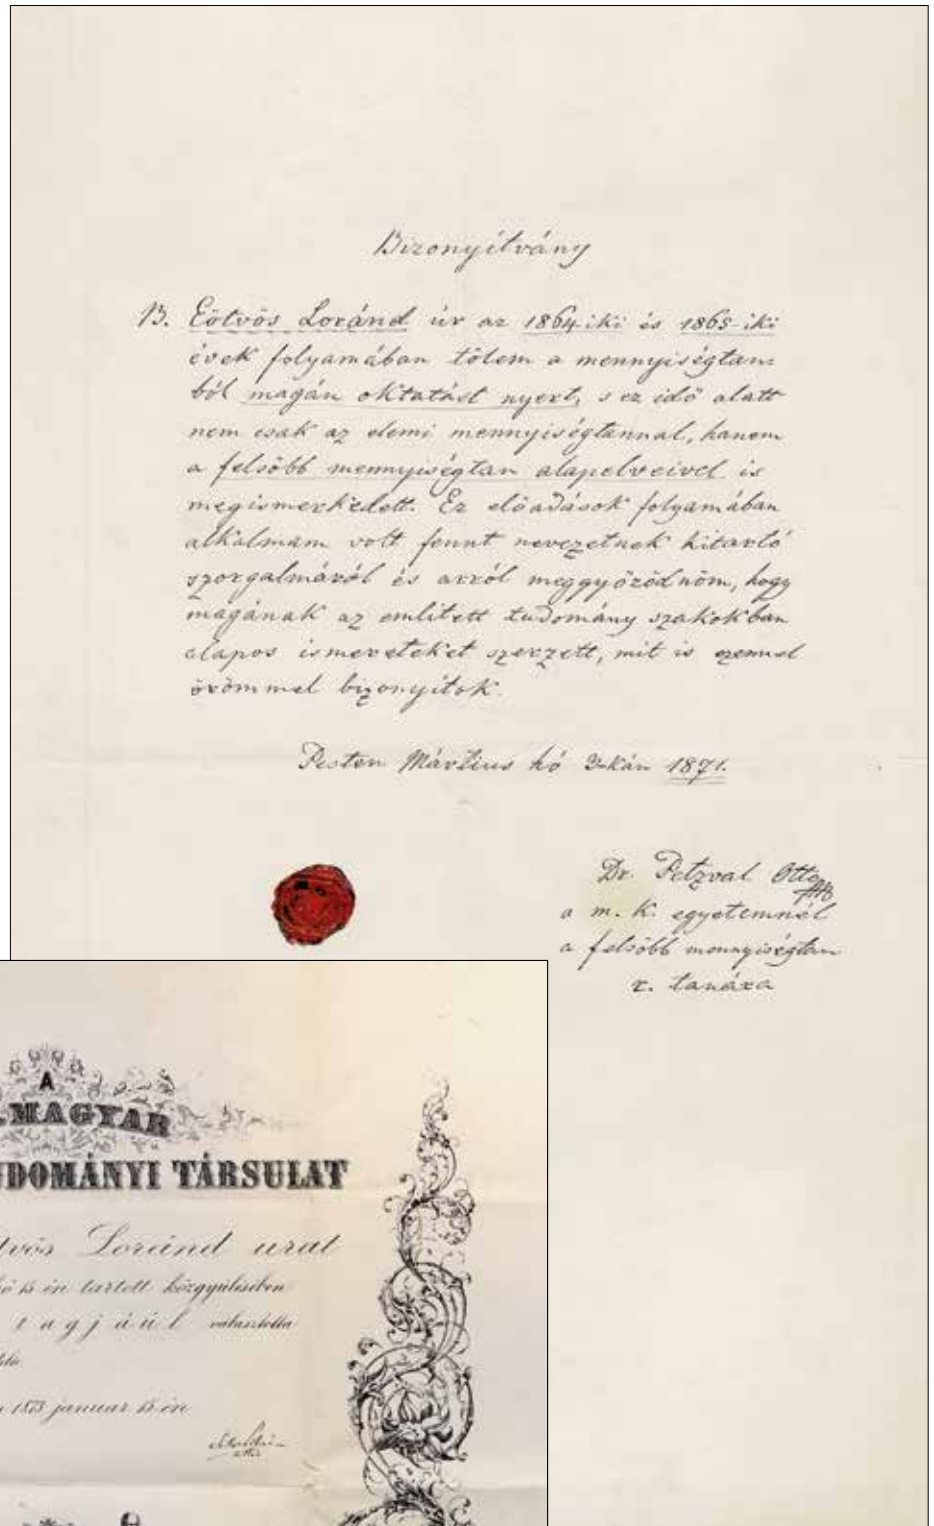 Bizonyítvány
B. Eötvös Loránd úr az 1864-iki és 1865-iki
évek folyamában tőlem a mennyiségtan-
ból magán oktatást nyert, s ez idő alatt
nem csak az elemi mennyiségtannal, hanem
a felsőbb mennyiségtan alapelveivel is
megismerkedett. Ez előadások folyamában
alkalmam volt fennt nevezetnek kitartó
szorgalmáról és arról meggyőződnöm, hogy
magának az említett tudomány szakokban
alapos ismereteket szerzett, mit is ezennel
örömmel bizonyítok.
Pesten Március hó 3-kán 1871.
Dr. Petzval Otto
a m. k. egyetemnél
a felsőbb mennyiségtan
r. tanára
A
MAGYAR
UDOMÁNYI TÁRSULAT
tvös Loránd urat
hó 15 én tartott közgyülésében
tagjáúl választotta
1873 január 15 én